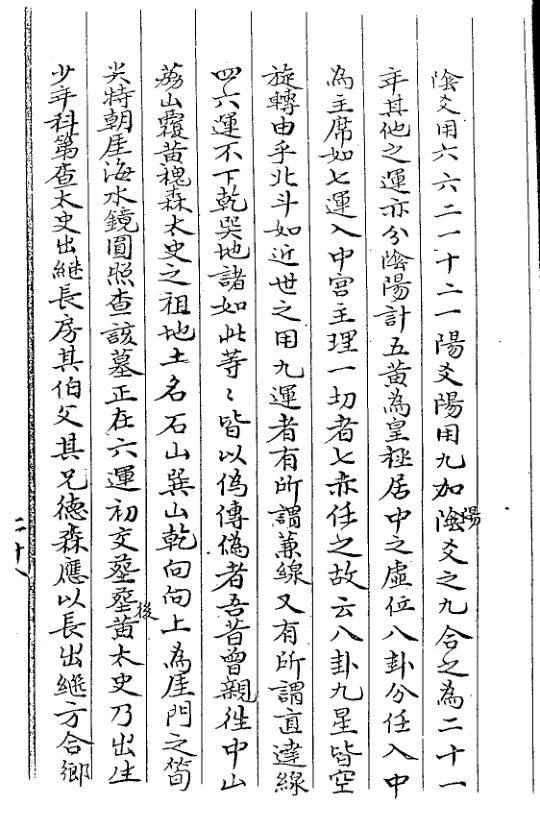 陰爻用六六二一十二一陽爻陽用九加陰陽爻之九合之為二十一
年其他之運亦分陰陽計五黃為皇極居中之虛位八卦分任入中
為主席如七運入中宮主理一切者七赤任之故云八卦九星皆空
旋轉由乎北斗如近世之用九運者有所謂兼線又有所謂直達線
四六運不下乾巽地諸如此等〻皆以偽傳偽者吾昔曾親往中山
荔山覆黃槐森太史之祖地土名石山巽山乾向向上為厓門之筍
尖特朝厓海水鏡圓照查該墓正在六運初交塟塟後黃太史乃出生
少年科第查太史出繼長房其伯父其兄德森應以長出繼方合鄉
二十八